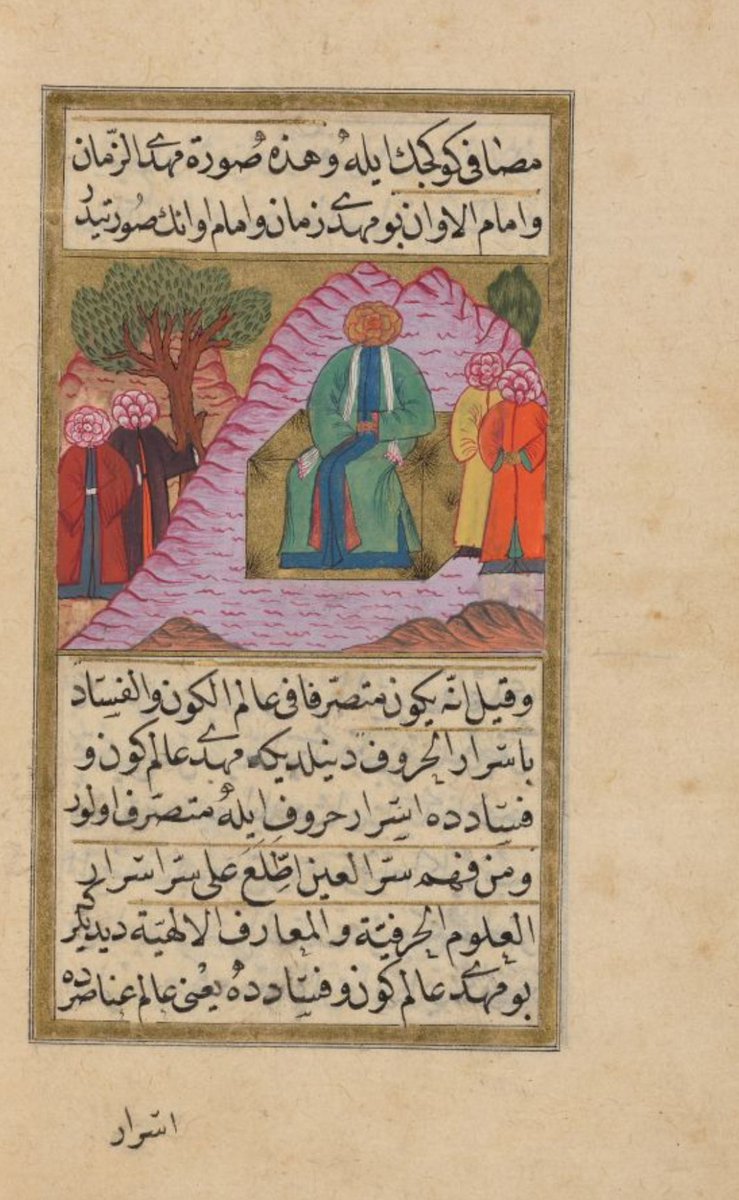 مصافى كوكجك ايله وهذه صورة مهدى الزمان
وامام الاوان بو مهدى زمان وامام اوانك صورتيدر
وقيل انّه يكون متصرّفا فى عالم الكون والفساد
باسرار الحروف دينلديكه مهدى عالم كون و
فساد ده اسرار حروف ايله متصرّف اولور
ومن فهم سرّ العين اطّلع على سرّ اسرار
العلوم الحرفيّة والمعارف الالهيّة ديديكلر
بو مهدى عالم كون وفساد ده يعنى عالم عناصرده
اسرار